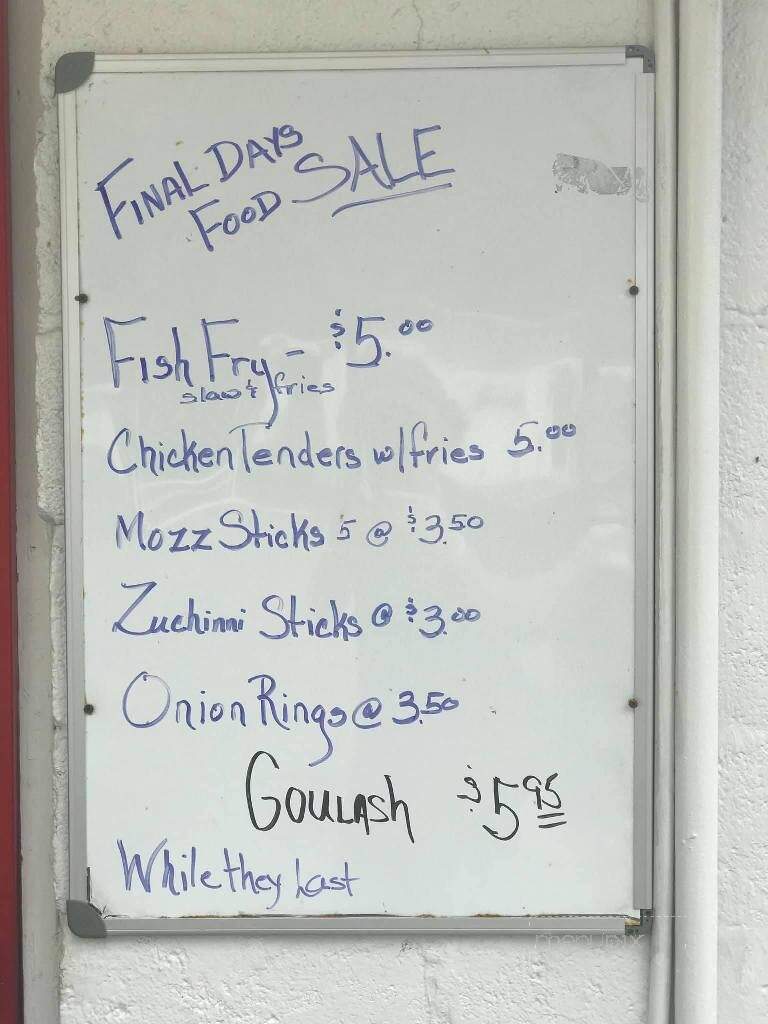 FINAL DAYS
FOOD SALE
Fish Fry - $5.00
slaw & fries
Chicken Tenders w/fries 5.00
Mozz Sticks 5 @ $3.50
Zuchinni Sticks @ $3.00
Onion Rings @ 3.50
GOULASH $5.95
While they Last
menupix